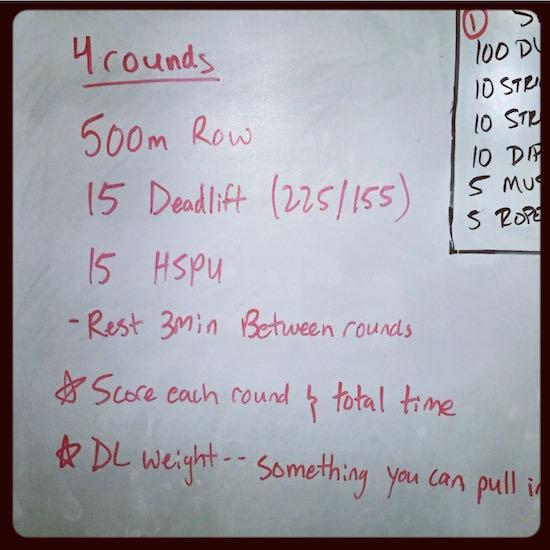 4 rounds
500m Row
15 Deadlift (225/155)
15 HSPU
- Rest 3min Between rounds
☆ Score each round & total time
☆ DL weight -- something you can pull in
1
100 DU
10 STRI
10 STR
10
5 MUS
5 ROPE